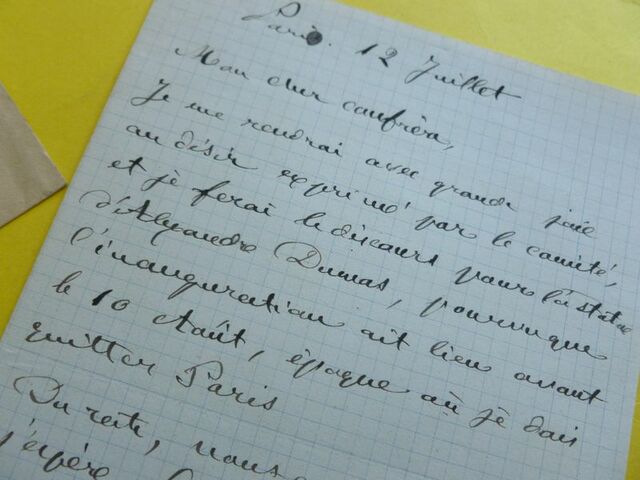 Paris. 12 Juillet
Mon cher confrère,
Je me rendrai avec grande joie
au désir exprimé par le comité,
et je ferai le discours pour la statue
d'Alexandre Dumas, pourvu que
l'inauguration ait lieu avant
le 10 Août, époque où je dois
quitter Paris
Du reste, nous
j'espère